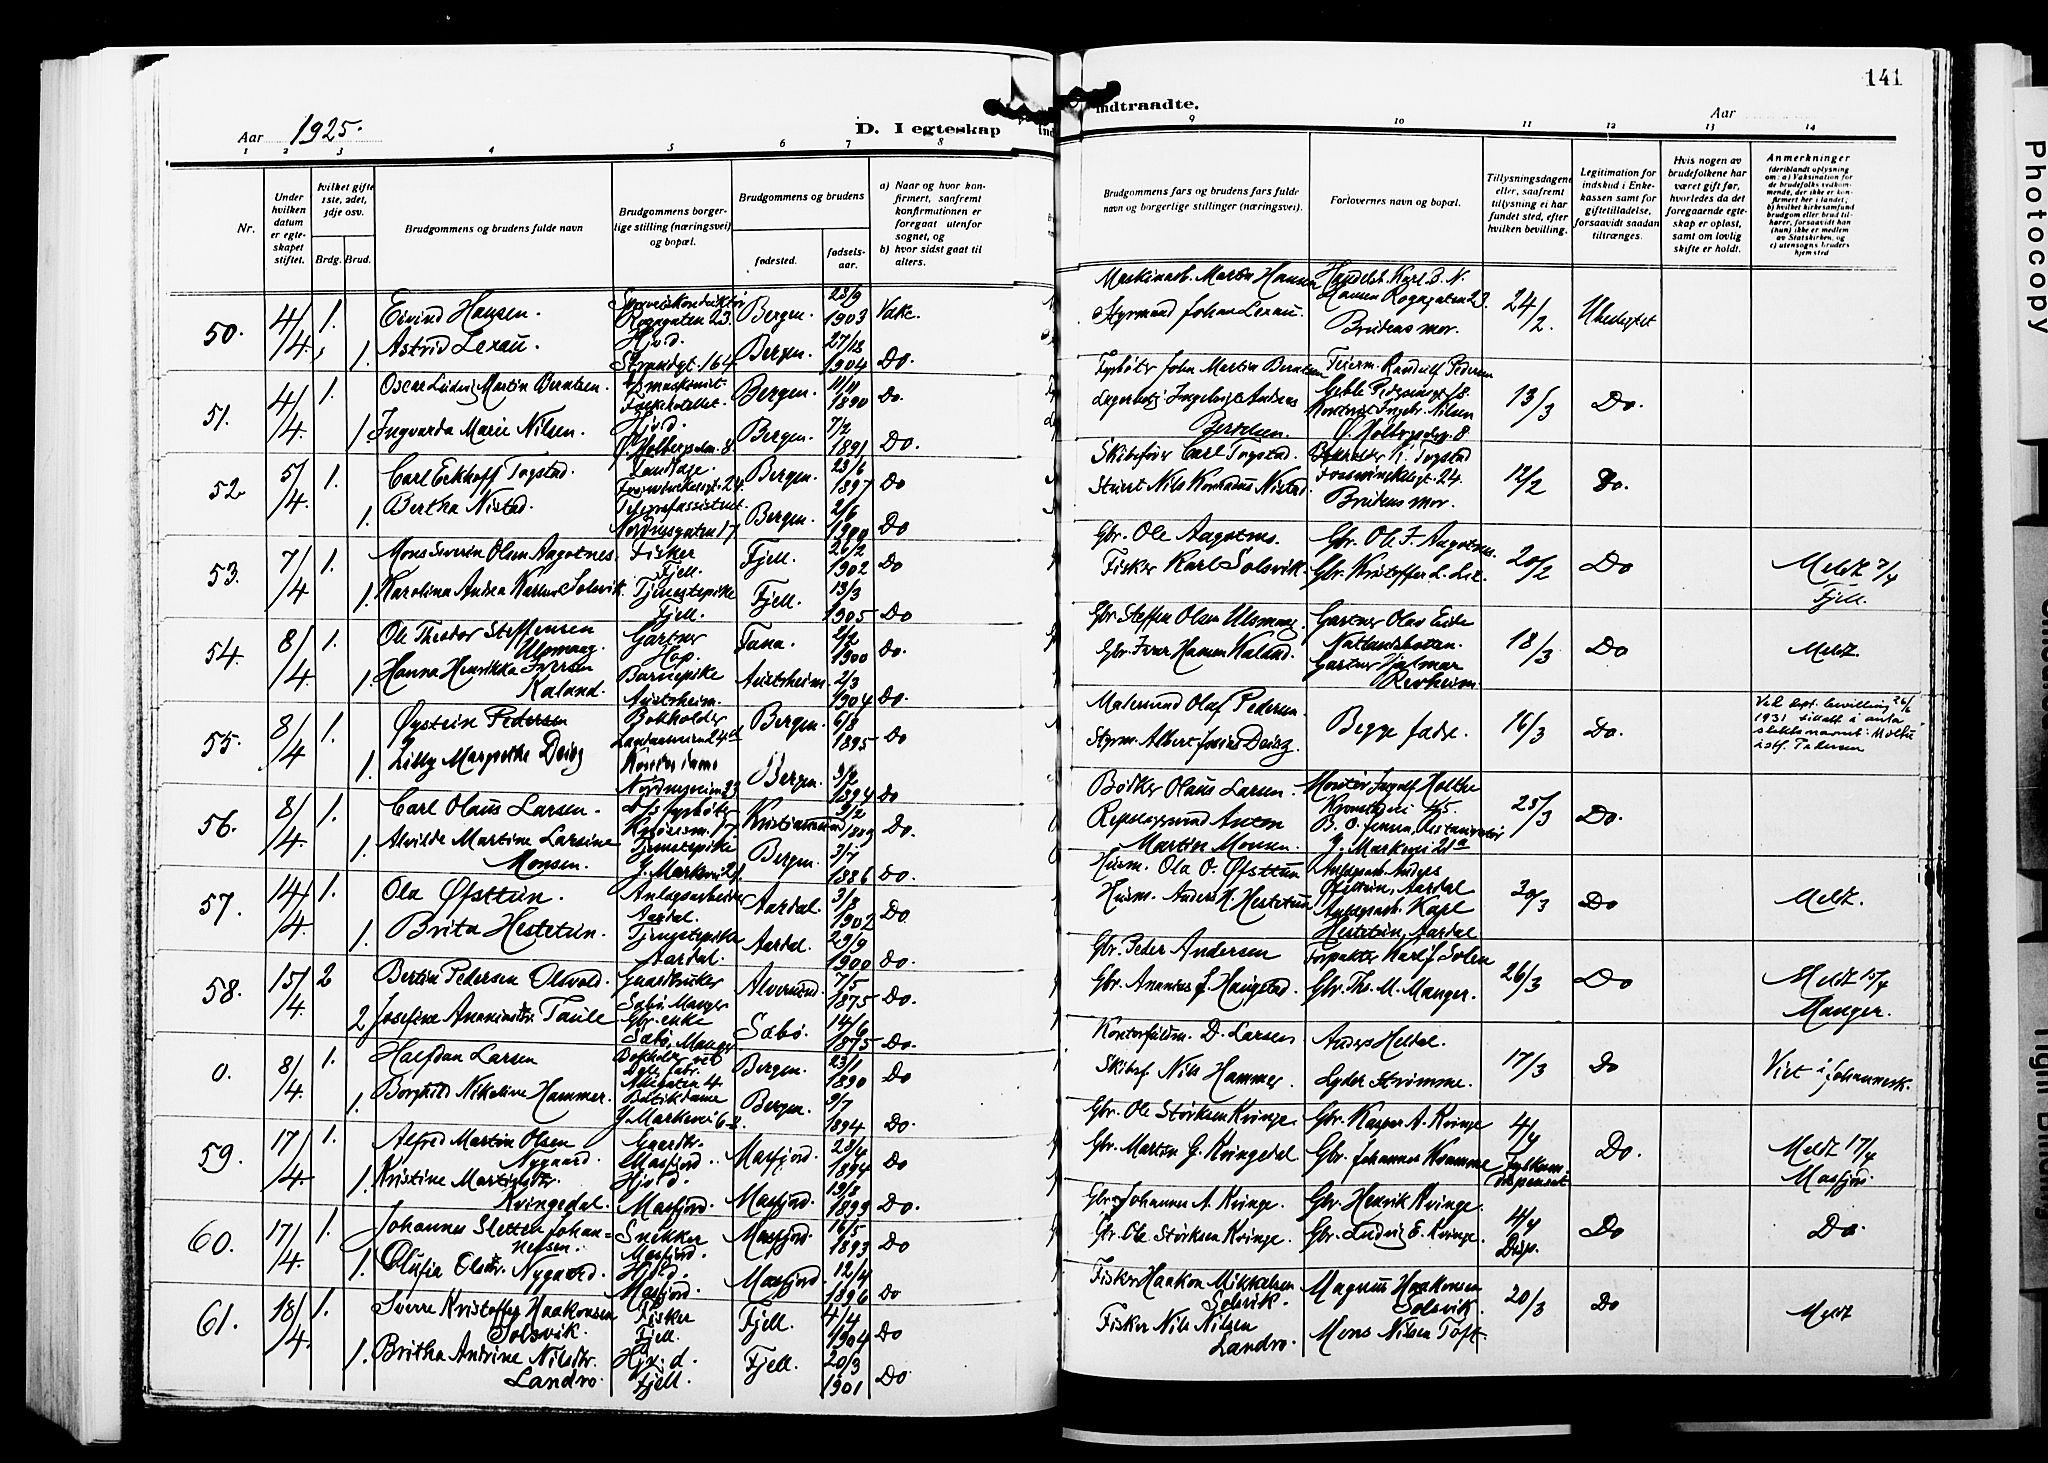 141
Aar 1925.
D. I egteskap
indtraadte.
Aar
1 2 3 4 5 6 7 8 9 10 11 12 13 14
Nr.
Under hvilken datum er egteskapet stiftet.
hvilket gifte 1ste, 2det, 3dje osv.
Brdg. Brud.
Brudgommens og brudens fulde navn
Brudgommens borgerlige stilling (næringsvei) og bopæl.
Brudgommens og brudens
fødested.
fødselsaar.
a) Naar og hvor konfirmert, saafremt konfirmationen er foregaat utenfor sognet, og
b) hvor sidst gaat til alters.
Brudgommens fars og brudens fars fulde navn og borgerlige stillinger (næringsvei).
Forlovernes navn og bopæl.
Tillysningsdagene eller, saafremt tillysning ei har fundet sted, efter hvilken bevilling.
Legitimation for indskud i Enkekassen samt for giftetilladelse, forsaavidt saadan tiltrænges.
Hvis nogen av brudefolkene har været gift før, hvorledes da det foregaaende egteskap er opløst, samt om lovlig skifte er holdt.
Anmerkninger (deriblandt oplysning om: a) Vaksination for de brudefolks vedkommende, der ikke er konfirmert her i landet; b) hvilket kirkesamfund brudgom eller brud tilhører, forsaavidt han (hun) ikke er medlem av Statskirken, og c) utensogns bruders hjemsted
50. 4/4. 1. Eivind Hansen. Rosegaten 23. Bergen. 23/9 1903
1. Astrid Lexau. Hjvd. Strandgt. 164 Bergen. 27/12 1904 Do.
Maskinarb. Martin Hansen
Styrmand Johan Lexau. Brudens mor. 24/2.
51. 4/4. 1. Oscar Ludvig Martin Berntsen. Bergen. 11/11 1890 Do.
1. Ingvarda Marie Nilsen. Hjvd. Bergen. 7/2 1891 Do.
Fyrbøter John Martin Berntsen
13/3 Do.
52 5/4. 1. Carl Eckhoff Togstad. Tandlæge. Bergen. 23/6 1897 Do
1. Bertha Nistad. Telegrafassistent Nordnesgaten 17 Bergen. 2/6 Do
Skibsfører Carl Togstad.
Stuert Nils Konradus Nistad. Brudens mor. 12/2 Do.
53. 7/4 1. Mons Severin Olsen Aagotnes. Fisker Fjell. Fjell. 26/2 1902 Do
1. Karolina Andrea Karlsd. Solsvik. Tjenestepike Fjell. Fjell. 13/3 1905 Do
Gbr. Ole Aagotnes. Gbr. Ole J. Aagotnes.
Fisker Karl Solsvik. Gbr. Kristoffer L. Lie. 20/2 Do Meldt 7/4 Fjell.
54. 8/4. 1. Ole Theodor Steffensen Ulsmaag. Gartner Hop. Fana. 2/2 1900 Do.
1. Hanna Henrikka Iversen Kaland. Barnepike Austrheim. Austrheim. 2/3 1904 Do.
Gbr. Steffen Olsen Ulsmaag. Gartner Olav Eide Nattlandsbotten.
Gbr. Iver Hansen Kaland. Gartner Hjalmar Revheim. 18/3 Do Meldt.
55. 8/4 1. Øystein Pedersen Bokholder Bergen. 6/8 1895 Do
1. Lilly Margrethe Døisz Kontordame Nordnesveien 23 Bergen. 3/2 1894 Do
Malersvend Olaf Pedersen.
Styrm. Albert Josias Døisz. Begge fædre. 16/3 Do.
Ved dept. bevilling 26/6 1931 tillatt i anta slektsnavnet: Molte istf. Pedersen
56. 8/4. 1. Carl Olaus Larsen. D/s fyrbøter Kristiansund 9/2 1889 Do.
1. Alvilde Martine Larsine Monsen. Tjenestepike Y. Markevei 21. Bergen. 3/7 1886 Do.
Bødker Olaus Larsen. Montør Ingolf Holthe
Repslagersvend Anton Martin Monsen. B. O. Jensen, Restauratør Y. Markevei 21a 25/3 Do.
57. 14/4. 1. Ola Øfsttun. Anlægsarbeider Aardal. Aardal. 3/8 1902 Do
1. Brita Hestetun. Tjenestepike Aardal. Aardal. 29/9 1900 Do.
Husm. Ola O. Øfsttun Anlægsarb. Anders Øfsttun, Aardal
Husm. Anders H Hestetun Anlægsarb. Karl Hestetun, Aardal 20/3 Do Meldt.
58. 15/4. 2 Bertin Pedersen Olsvold. Gaardbruker Sæbø Manger Alversund. 7/5 1875 Do.
2. Josefine Ananiasdtr. Taule Gbr. enke Sæbø, Manger Sæbø. 14/6 1875 Do.
Gbr. Peder Andersen
Gbr. Ananias J. Haugstad. Gbr. Ths. M. Manger. 26/3 Do Meldt 15/4 Manger.
0. 8/4. 1. Halfdan Larsen Bokholder ved Bergen. 23/1 1890 Do
1. Borghild Nikoline Hammer. Butikdame Y. Markevei 6-8. Bergen. 9/7 1894 Do.
Kontorfuldm. D. Larsen Anders Heldal.
Skibsf. Nils Hammer Lyder Strømme. 17/3 Do Viet i Johannesk.
59. 17/4 1. Alfred Martin Olsen Nygaard. Gaardbr. Masfjord. Masfjord. 23/4 1894 Do
1. Kristine Martinsdtr. Kvingedal. Hjvd. Masfjord. Masfjord. 19/8 1899 Do.
Gbr. Ole Størksen Kvinge. Gbr. Kasper A. Kvinge
Gbr. Martin G. Kvingedal. Gbr. Johannes Kvamme 4/4 Fylkesm. dispensat. Do. Meldt 17/4 Masfjord.
60. 17/4. 1. Johannes Sletten Johannessen. Snekker Masfjord. Masfjord. 16/5 1893 Do
1. Olufia Olsdtr. Nygaard. Hjvd. Masfjord. Masfjord 12/4 1896 Do
Gbr. Johannes A. Kvinge. Gbr. Henrik Kvinge.
Gbr. Ole Størksen Kvinge. Gbr. Ludvig E. Kvinge. 4/4 Disp. Do Do.
61. 18/4. 1. Sverre Kristoffer Haakonsen Solsvik. Fisker Fjell. Fjell. 4/4 1904 Do
1. Britha Andrine Nilsdtr. Landro. Hjv. d. Fjell. Fjell. 20/3 1901 Do.
Fisker Haakon Mikkelsen Solsvik. Magnus Haakonsen Solsvik.
Fisker Nils Nilsen Landro. Mons Nilsen Toft. 20/3 Do Meldt
Photocopy
Tight Binding